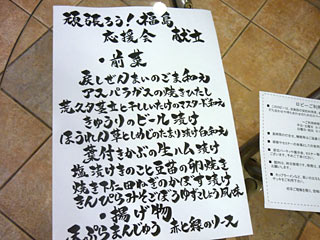 頑張ろう！福島
応援会 献立
・前菜
戻しぜんまいのごま和え
アスパラガスの焼きびたし
荒久田茎立と干ししいたけのマスタード和え
きゅうりのビール漬け
ほうれん草としめじのたまり漬け白和え
葉付きかぶの生ハム漬け
塩漬けきのこと豆苗の卵焼き
焼き下仁田なぎのかぼす漬け
きんぴらみそごぼうゆずこしょう風味
・揚げ物
ほぷらまんじゅう 赤と緑のソース